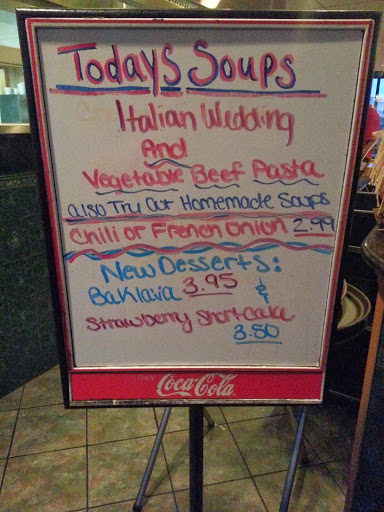 Todays Soups
Italian Wedding
And
Vegetable Beef Pasta
Also Try Our Homemade Soups
Chili or French Onion 2.99
New Desserts:
Baklava 3.95 &
Strawberry Shortcake
3.50
Coca-Cola